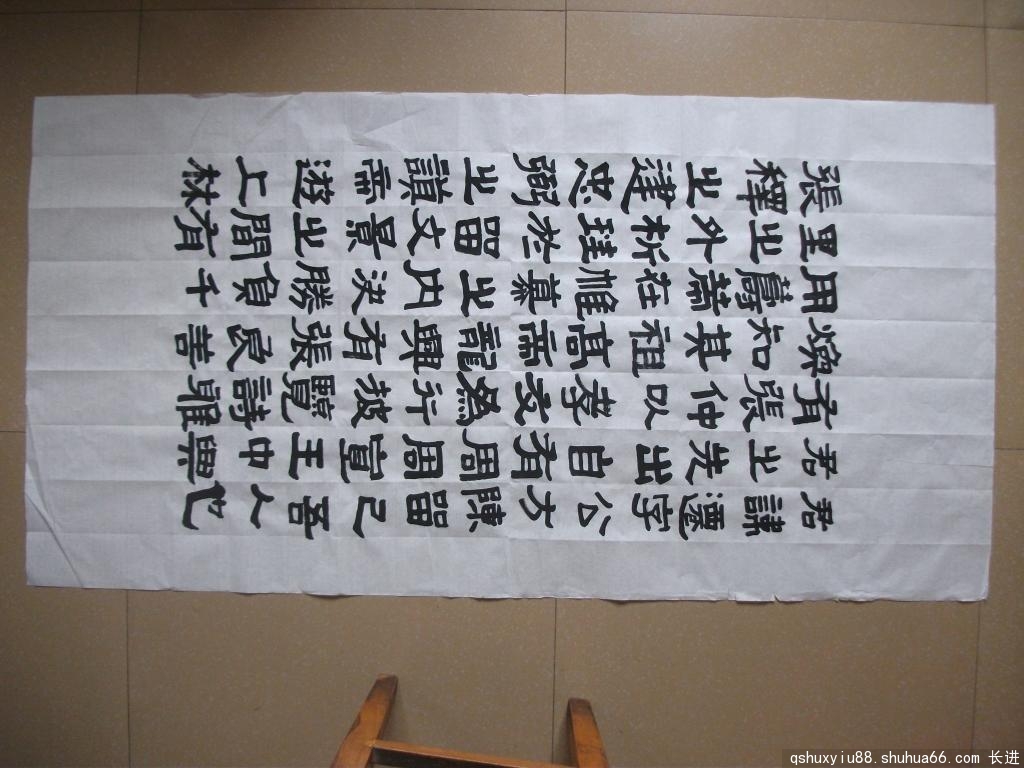 君諱遷字公方陳留己吾人也
君之先出自有周周宣王中興
有張仲以孝友為行披覽詩雅
煥知其祖高帝龍興有張良善
用籌策在帷幕之内決勝負千
里之外析珪於留文景之間有
張釋之建忠弼之謨帝遊上林
qshuxyiu88.shuhua66.com 长进